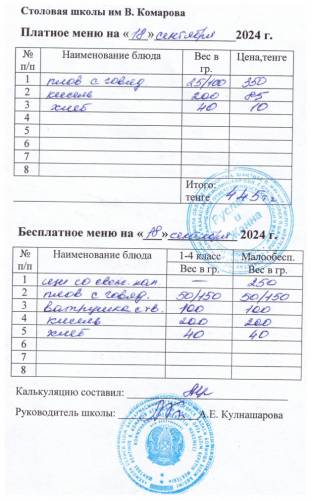 Столовая школы им В. Комарова
Платное меню на «18» сентября 2024 г.
№ п/п Наименование блюда Вес в гр. Цена,тенге
1 плов с говяд 25/100 350
2 кисель 200 85
3 хлеб 40 10
4
5
6
7
8
Итого: тенге 445тг
Бесплатное меню на «18» сентября 2024 г.
№ п/п Наименование блюда 1-4 класс Малообесп.
Вес в гр. Вес в гр.
1 щи со свеж. кап — 250
2 плов с говяд. 50/150 50/150
3 ватрушка с тв. 100 100
4 кисель 200 200
5 хлеб 40 40
6
7
8
Калькуляцию составил:
Руководитель школы: А.Е. Кулнашарова